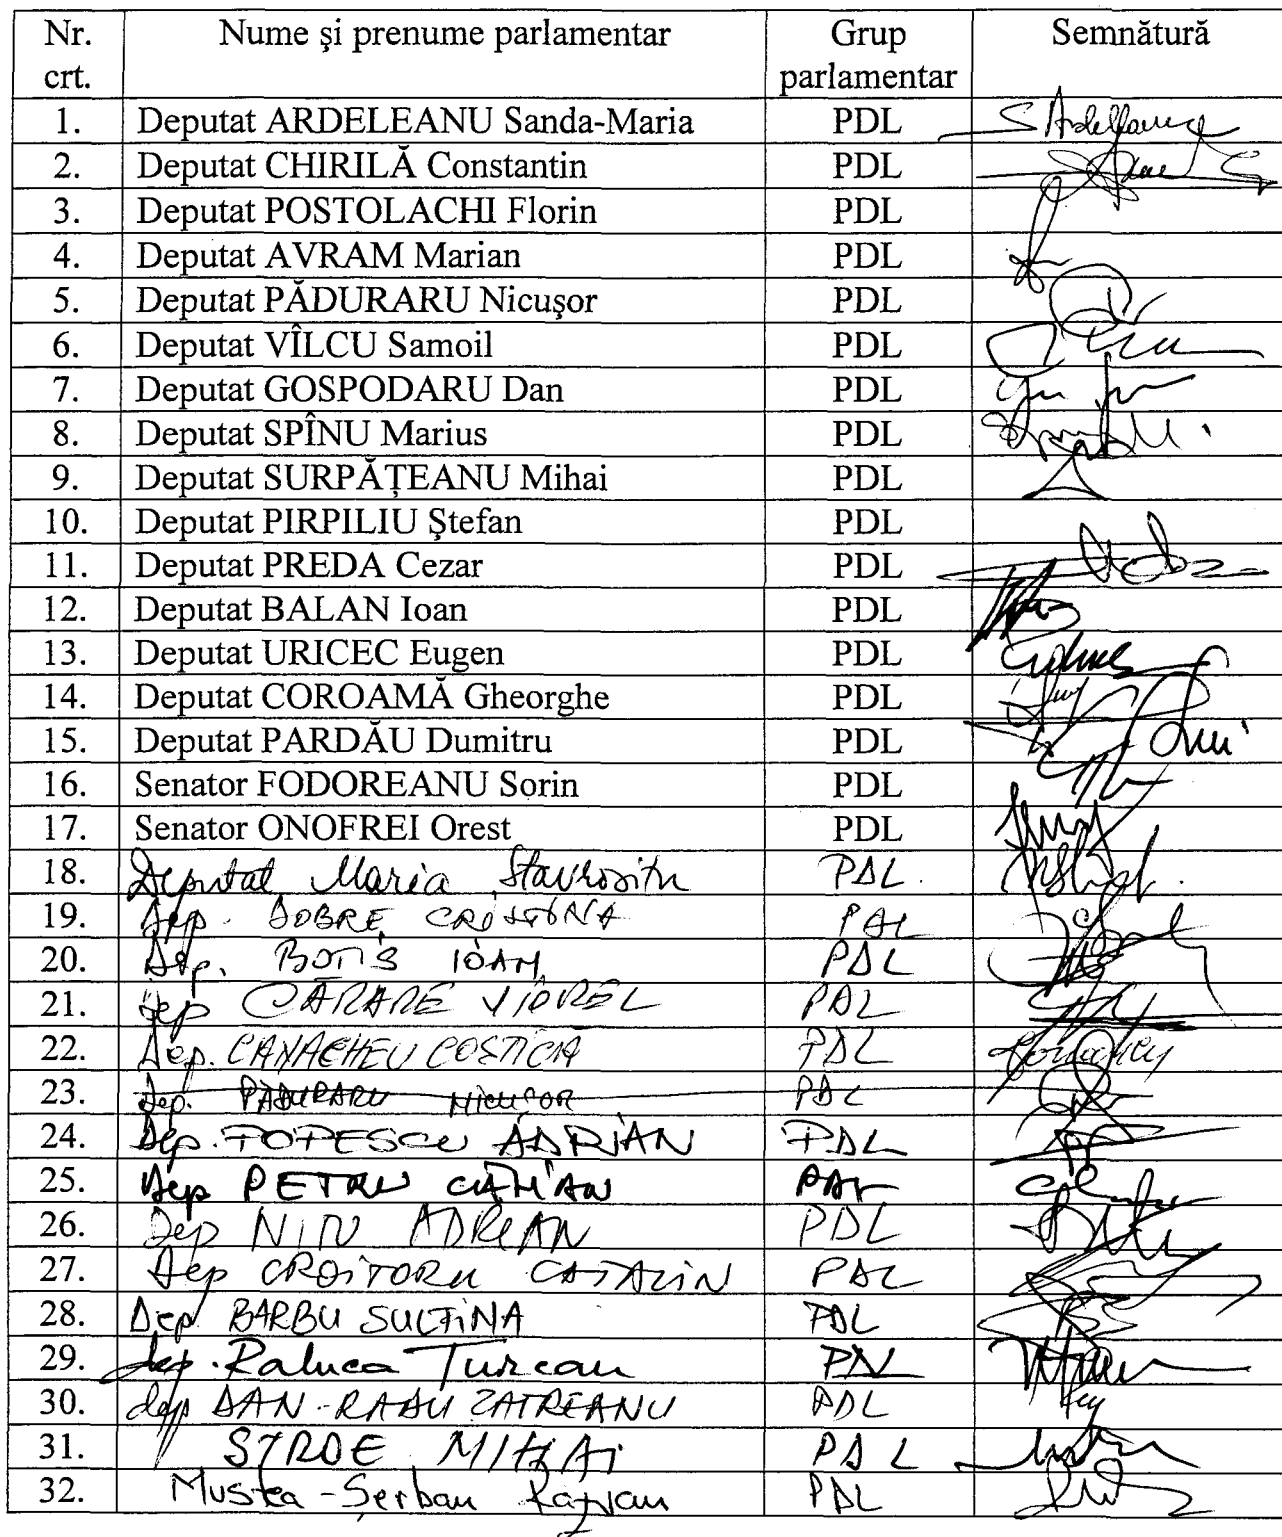 Nr. crt. Nume și prenume parlamentar Grup parlamentar Semnătură
1. Deputat ARDELEANU Sanda-Maria PDL S Ardeleanu
2. Deputat CHIRILĂ Constantin PDL
3. Deputat POSTOLACHI Florin PDL
4. Deputat AVRAM Marian PDL
5. Deputat PĂDURARU Nicușor PDL
6. Deputat VÎLCU Samoil PDL
7. Deputat GOSPODARU Dan PDL
8. Deputat SPÎNU Marius PDL
9. Deputat SURPĂȚEANU Mihai PDL
10. Deputat PIRPILIU Ștefan PDL
11. Deputat PREDA Cezar PDL
12. Deputat BALAN Ioan PDL
13. Deputat URICEC Eugen PDL
14. Deputat COROAMĂ Gheorghe PDL
15. Deputat PARDĂU Dumitru PDL
16. Senator FODOREANU Sorin PDL
17. Senator ONOFREI Orest PDL
18. Deputat Maria Stavrositu PDL
19. Dep. DOBRE CRISTINA PDL
20. Dep. BOTIS IOAN PDL
21. Dep CĂRARE VIOREL PDL
22. Dep. CANACHEU COSTICĂ PDL
23. Dep. PĂDURARU NICUȘOR PDL
24. Dep. POPESCU ADRIAN PDL
25. Dep PETRU CĂLIAN PDL
26. Dep NIȚU ADRIAN PDL
27. Dep CROITORU CATALIN PDL
28. Dep. BARBU SULFINA PDL
29. dep. Raluca Turcan PDL
30. dep DAN-RADU ZATREANU PDL
31. STROE MIHAI PDL
32. Mustea-Șerban Razvan PDL